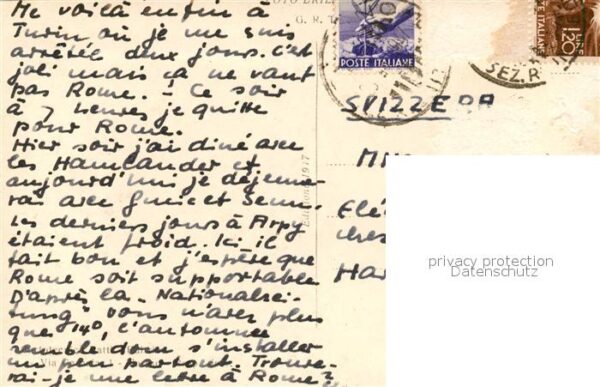 Me voilà enfin à
Turin où je me suis
arrêtée deux jours. C'est
joli mais ça ne vaut
pas Rome. - Ce soir
à 7 heures je quitte
pour Rome.
Hier soir j'ai diné avec
les et
aujourd'hui je déjeune-
rai avec et
Les derniers jours à Arpy
étaient froid. Ici il
fait bon et j'espère que
Rome soit supportable
D'après la "Nationalzei-
tung" vous n'avez plus
que 14°, l'automne
semble donc s'installer
un peu partout. Trouve-
rai-je une lettre à Rome?
G. R.
POSTE ITALIANE
ITALIANE
1,20
SEZ. R
SVIZZERA
Elé
ches
Har
Edizione 1947
privacy protection
Datenschutz